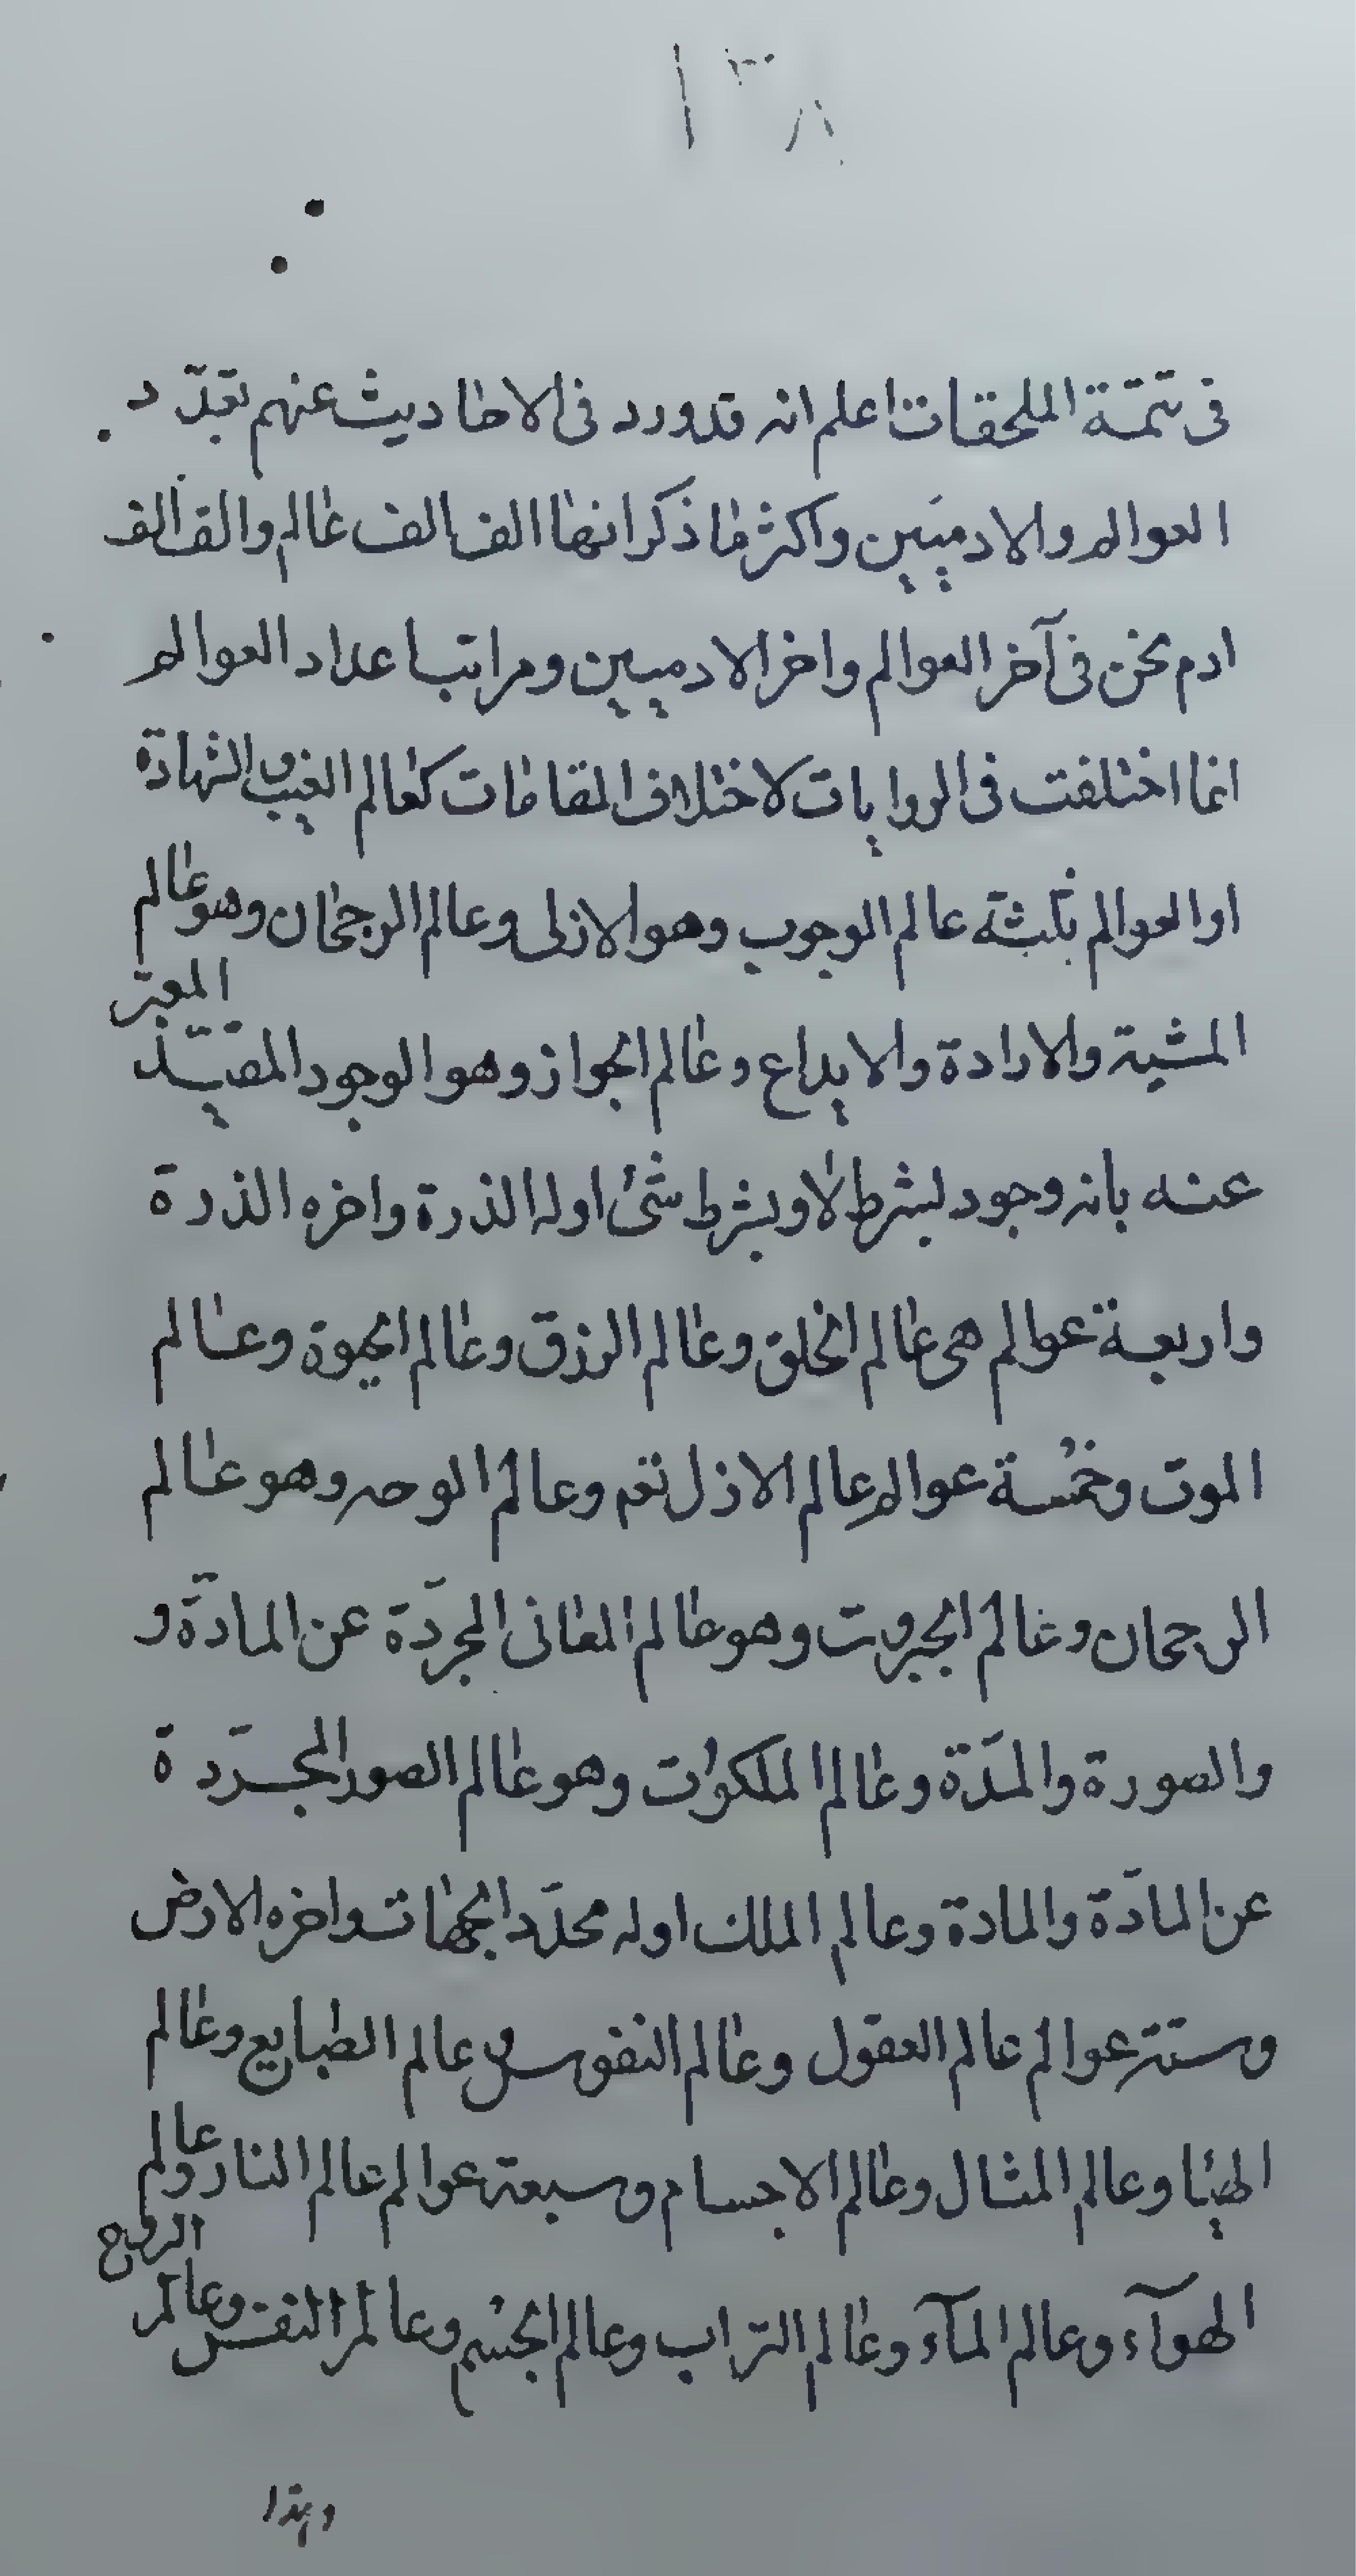 ١٣٨
فى تتمة الملحقات اعلم انه قدورد فى الاحاديث عنهم تعدّد
العوالم والادميين واكثر ما ذكر انها الف الف عالم والف الف
ادم نحن فى آخر العوالم واخر الادميين ومراتب اعداد العوالم
انما اختلفت فى الروايات لاختلاف المقامات كعالم الغيب والشهادة
او العوالم ثلثة عالم الوجوب وهو الازلى وعالم الرجحان وهو عالم
المشية والارادة والابداع وعالم الجواز وهو الوجود المقيّد المعبّر
عنه بانه وجود لبشرط لا وبشرط شئ اوله الذرة واخره الذرة
واربعة عوالم هى عالم الخلق وعالم الرزق وعالم الحيوة وعالم
الموت وخمسة عوالم عالم الازل نعم وعالم الوحه وهو عالم
الرجحان وعالم الجبروت وهو عالم المعانى المجرّدة عن المادّة و
والصورة والمدّة وعالم الملكوت وهو عالم الصور المجرّدة
عن المادّة والمادة وعالم الملك اوله محدّد الجهات واخره الارض
وستة عوالم عالم العقول وعالم النفوس وعالم الطبايع وعالم
الهيئا وعالم المثال وعالم الاجسام وسبعة عوالم عالم النار وعالم
الهوآء وعالم المآء وعالم التراب وعالم الجسم وعالم النفس وعالم الروح
وهذا